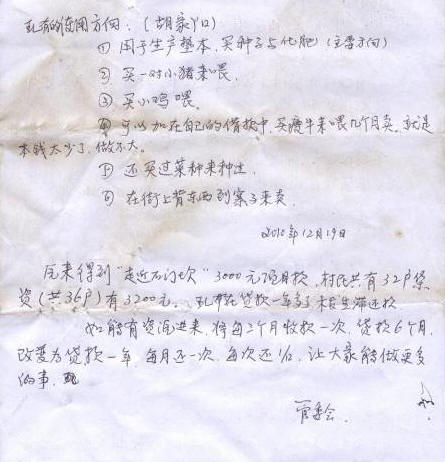 现有的使用方向：（胡家丫口）
① 用于生产垫本，买种子与化肥（主要方向）
② 买一对小猪来喂。
③ 买小鸡喂。
④ 可以加在自己的借款中，买瘦牛来喂几个月卖，就是
本钱太少了，做不大。
⑤ 还买过菜种来种过
⑥ 在街上背东西到寨子来卖
2010年12月19日
原来得到“走近石门坎”3000元项目款，村民共有32户集
资（共36户）有3200元。现都在贷款一年多了 未发生滞还款
如能有资源进来，将每三个月收款一次，贷款6个月，
改变为贷款一年，每月还一次，每次还1/12，让大家能做更多
的事。
管委会